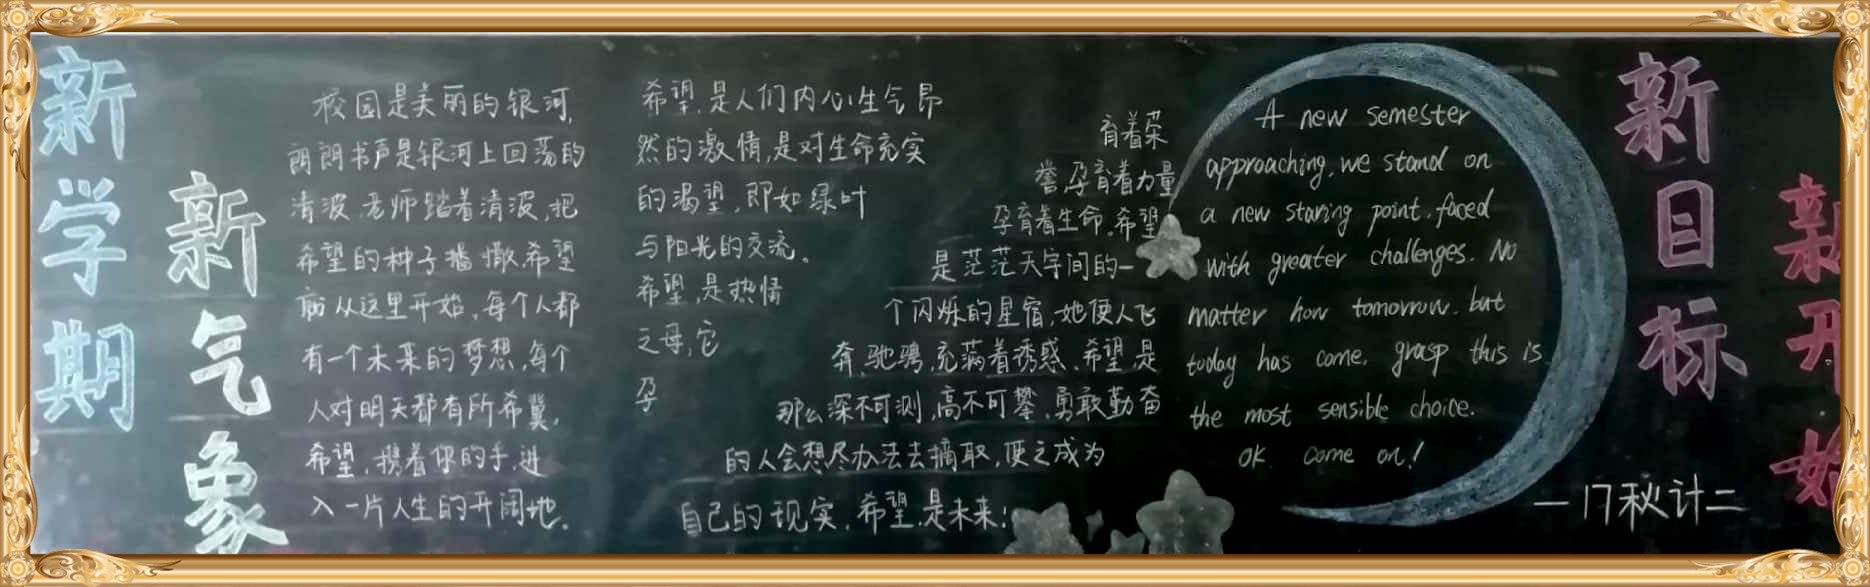 新学期
新气象
校园是美丽的银河,
朗朗书声是银河上回荡的
清波,老师踏着清波,把
希望的种子播撒,希望
从这里开始,每个人都
有一个未来的梦想,每个
人对明天都有所希冀,
希望,携着你的手,进
入一片人生的开阔地。
希望,是人们内心生气昂
然的激情,是对生命充实
的渴望,即如绿叶
与阳光的交流。
希望,是热情
之母,它
孕
育着荣
誉,孕育着力量
孕育着生命,希望
是茫茫天宇间的一
个闪烁的星宿,她使人飞
奔,驰骋,充满着诱惑、希望,是
那么深不可测,高不可攀,勇敢勤奋
的人会想尽办法去摘取,使之成为
自己的现实,希望,是未来!
A new semester
approaching, we stand on
a new staring point. faced
with greater challenges. No
matter how tomorrow. but
today has come. grasp this is
the most sensible choice.
OK come on!
新目标
新开始
—17秋计二